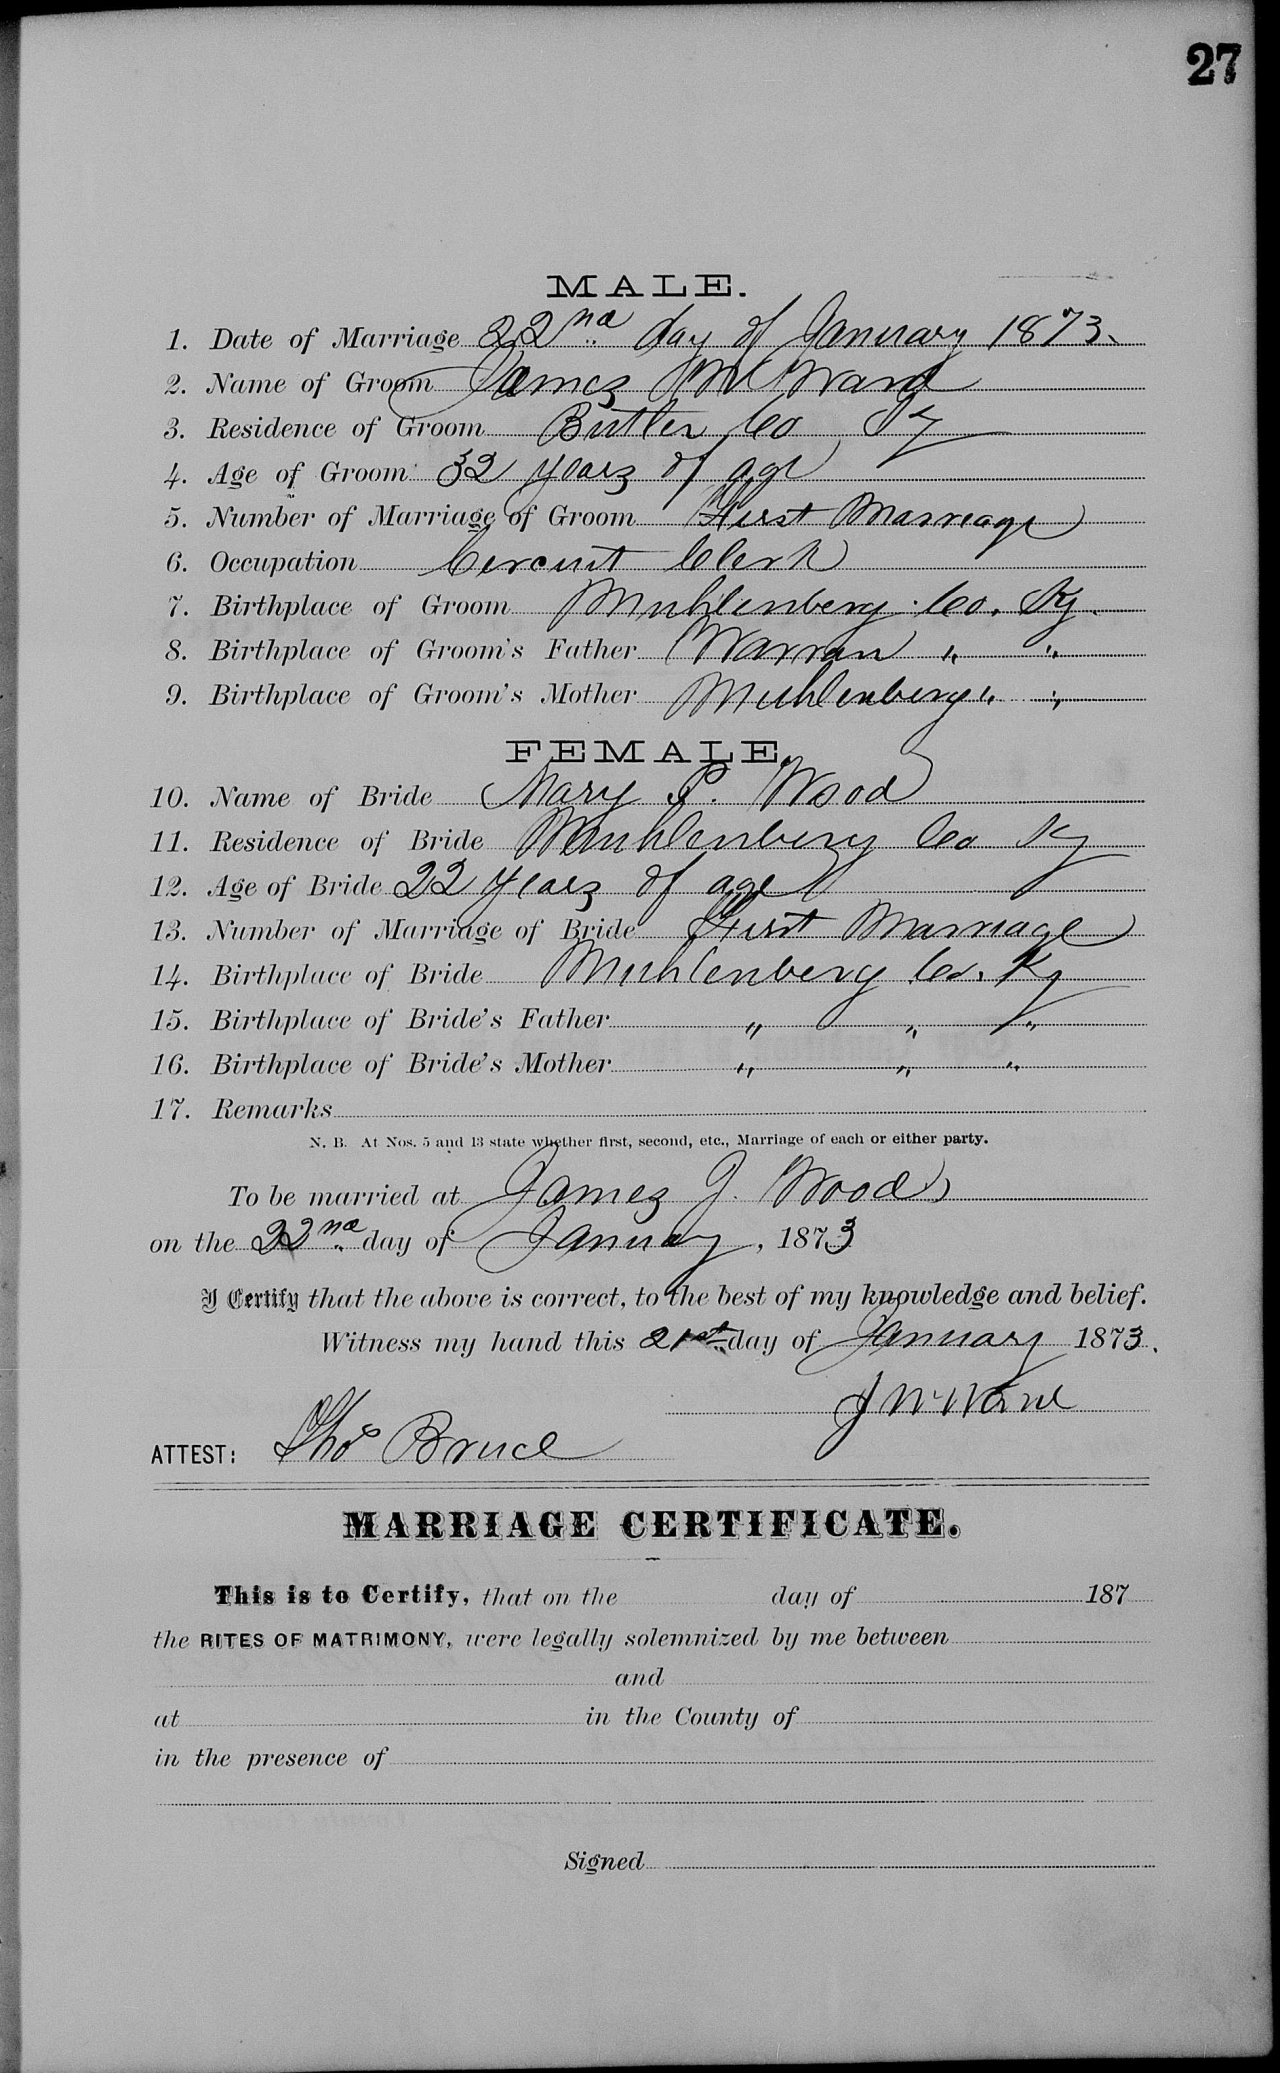 27
MALE.
1. Date of Marriage 22nd day of January 1873.
2. Name of Groom James Ward
3. Residence of Groom Butler Co Ky
4. Age of Groom 32 years of age
5. Number of Marriage of Groom First Marriage
6. Occupation Circuit Clerk
7. Birthplace of Groom Muhlenberg Co. Ky.
8. Birthplace of Groom's Father Warran " "
9. Birthplace of Groom's Mother Muhlenberg " "
FEMALE.
10. Name of Bride Mary P. Wood
11. Residence of Bride Muhlenberg Co Ky
12. Age of Bride 22 years of age
13. Number of Marriage of Bride First Marriage
14. Birthplace of Bride Muhlenberg Co. Ky
15. Birthplace of Bride's Father " " "
16. Birthplace of Bride's Mother " " "
17. Remarks
N. B. At Nos. 5 and 13 state whether first, second, etc., Marriage of each or either party.
To be married at James J. Wood,
on the 22nd day of January, 1873
I Certify that the above is correct, to the best of my knowledge and belief.
Witness my hand this 21st day of January 1873.
J W Ward
ATTEST: Thos Bruce
MARRIAGE CERTIFICATE.
This is to Certify, that on the day of 187
the RITES OF MATRIMONY, were legally solemnized by me between
and
at in the County of
in the presence of
Signed